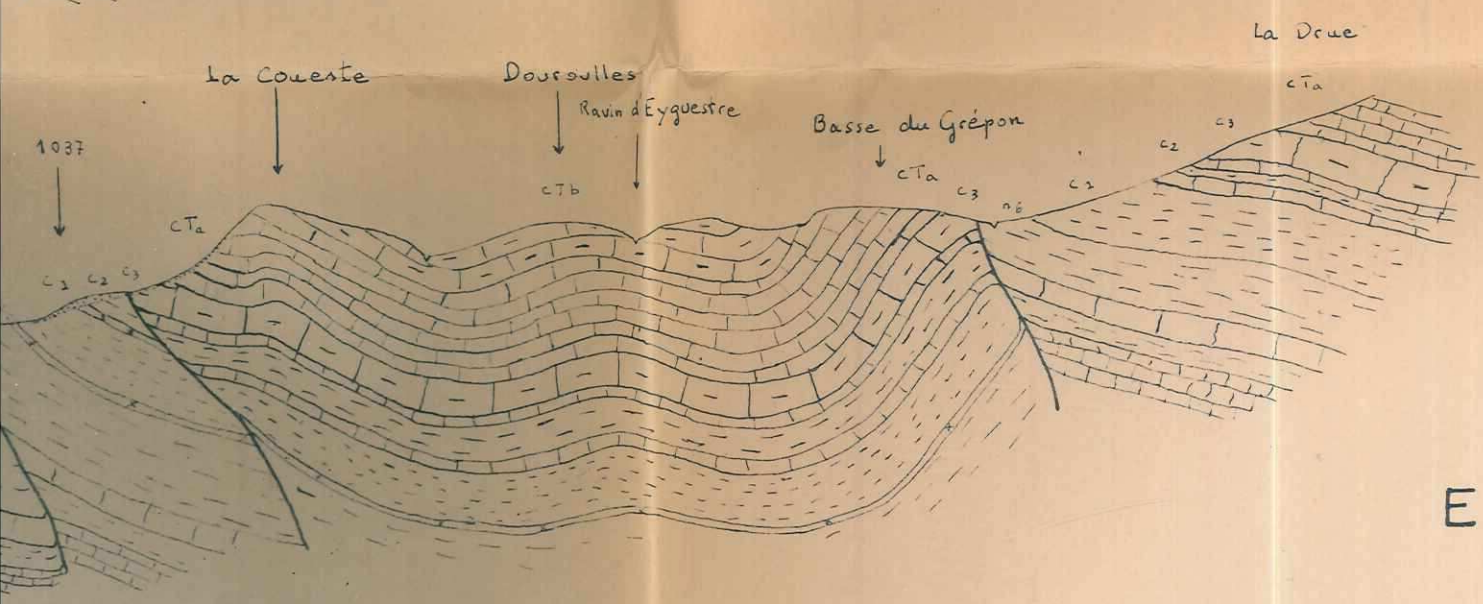 La Drue
La Coueste
Douroulles
cTa
Ravin d'Eyguestre
Basse du Grépon
c3
1037
c2
cTa
cTb
c3
c2
n6
cTa
c1 c2 c3
E